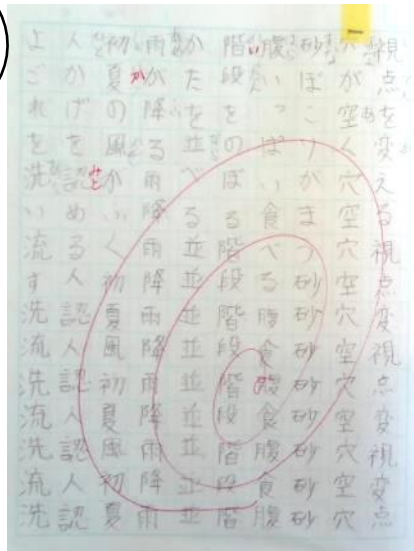 視点を変える視点変視点変視変点
穴が空く穴空穴空穴空穴空穴空穴
砂ぼこりがまう砂砂砂砂砂砂砂砂
腹いっぱい食べる腹食腹食腹食腹
階段をのぼる階段階段階段階段階
かたを並べる並並並並並並並並並
雨が降る雨降雨降雨降雨降雨降雨
初夏の風がふく初夏風初夏風初夏
人かげを認める人認人認人認人認
よごれを洗い流す洗流洗流洗流洗